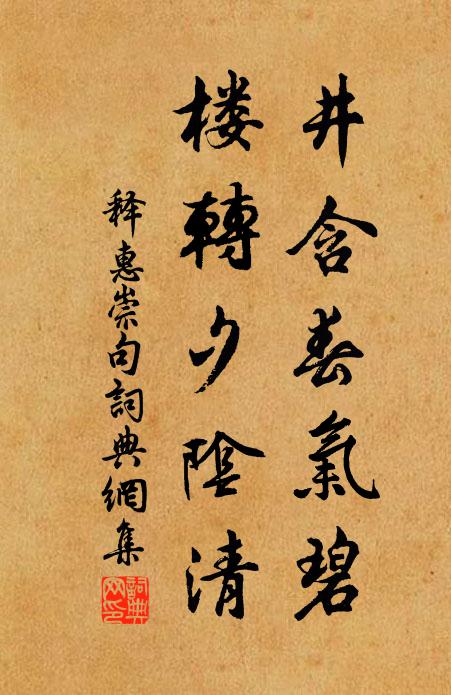 井含春氣碧
楼轉夕陰清
释惠崇句詞典網集
詞典网印